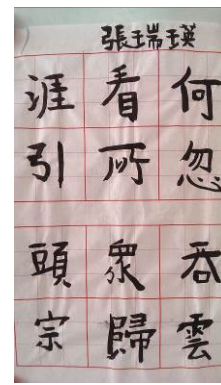 張瑞瑛
何忽吞雲
看所眾歸
涯引頭宗